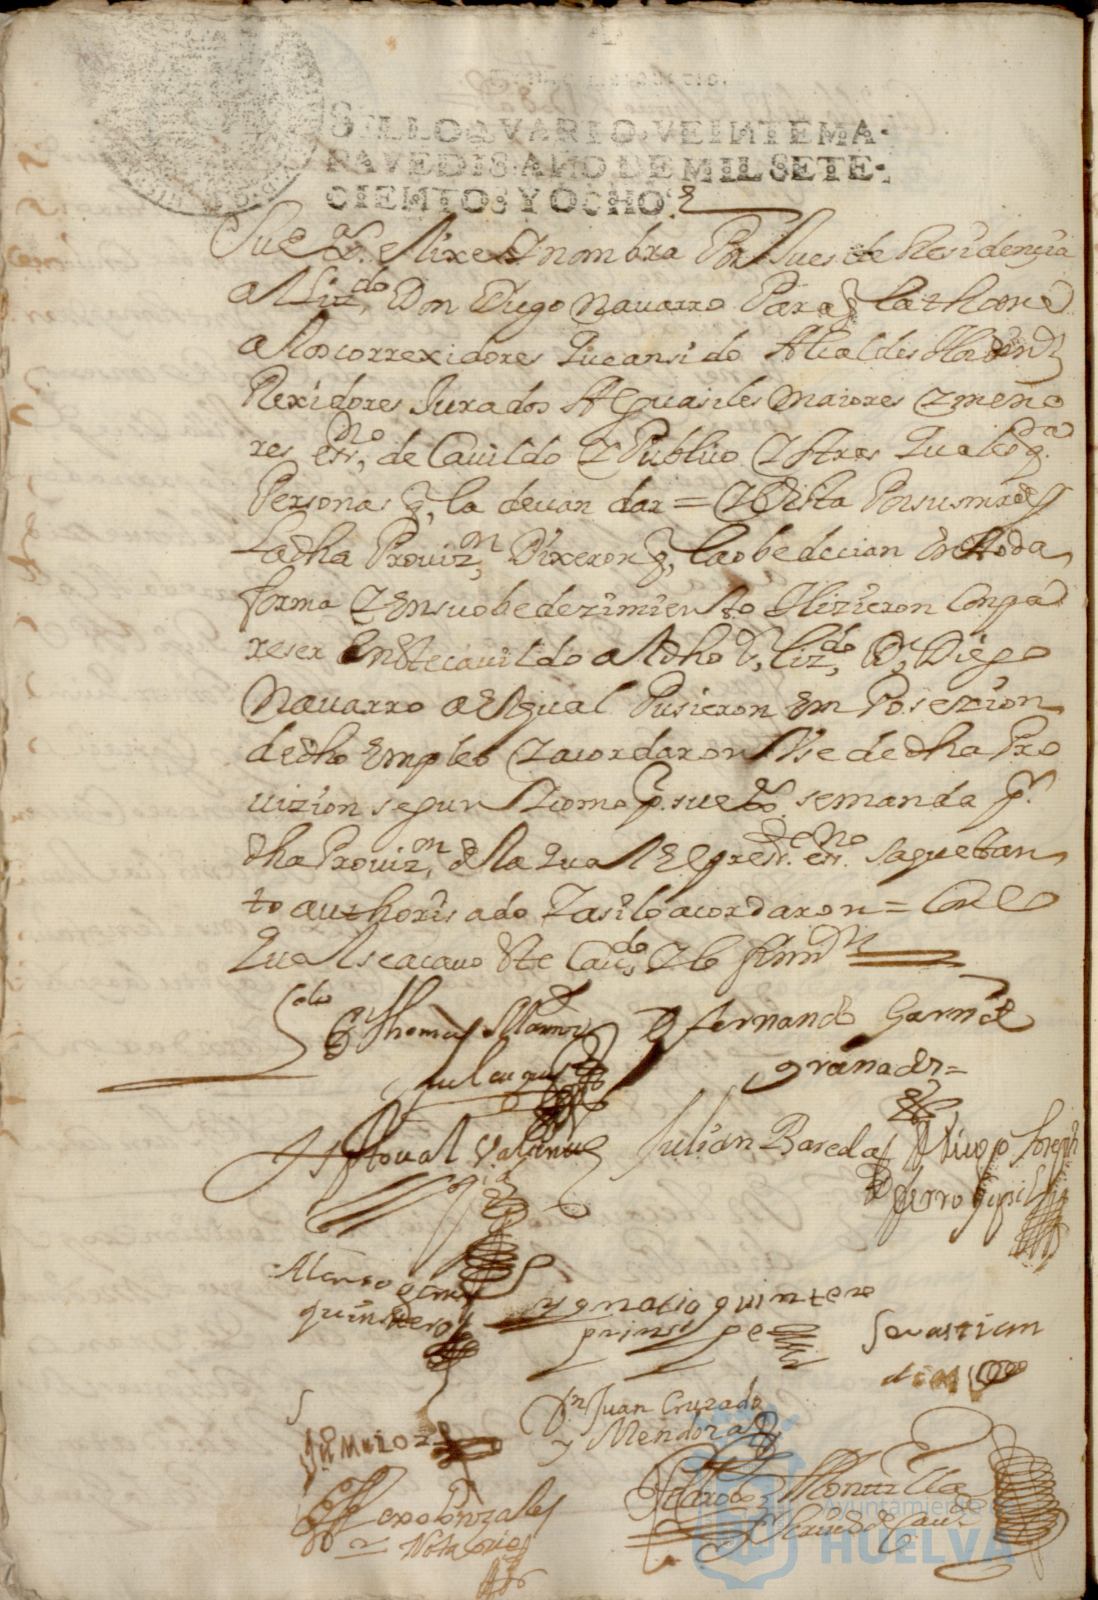 SELLO QVARTO, VEINTE MA-
RAVEDIS, AÑO DE MIL SETE-
CIENTOS Y OCHO.
Su exª. elixe Y nombra Por Jues de Residençia
al Lizdo. Don Diego Navarro Para q la thome
a los correxidores Que an sido Alcaldes
Rexidores Jurados Alguasiles Maiores Y meno
res essno. de Cavildo Y Publico Y otras Quales q.
Personas q, la devan dar = Y Vista Por sus mrdes
La dha Provizn, Dixeron q, la obedecian en toda
forma Y en su obedezimiento Hizieron Compa
reser En este cavildo al dho Sr, Lizdo, Dn, Diego
Navarro a el qual Pusieron em Posezion
de dho Empleo Y acordaron Vse de dha Pro
vizion segun Y como P. su exª. se manda P.
dha Provizn, de la Qual El presste. essno. saque tan
to authorisado Y asi lo acordaron = Con lo
Qual se acavo este Cavdo, Y lo firmn
Ldo Thomas
D fernando Garrido
granado =
Julian Bareda
Diego Joseph
Alonso gomes
quintero
ygnacio quintero
prinsipe
Sevastian
dias
Jn Juan Cruzado
y Mendoza
Ju Muñoz
Gonzales
Notario
Montilla
Scriuo de Cauo
Ayuntamiento de
HUELVA